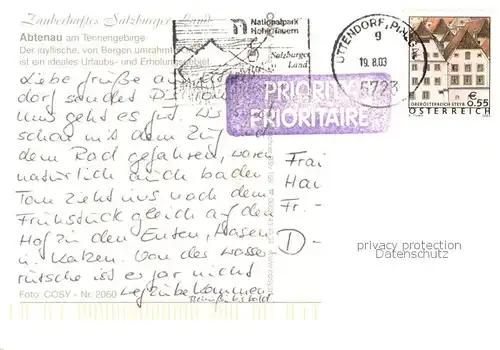 Zauberhaftes Salzburger Land
Abtenau am Tennengebirge
Der idyllische, von Bergen umrahmte
ist ein ideales Urlaubs- und Erholungsgebiet
Nationalpark
Hohe Tauern
Salzburger
Land
UTTENDORF, PINZGAU
g
19.8.03
5723
€ 0.55
OBERÖSTERREICH STEYR
ÖSTERREICH
PRIORITY
PRIORITAIRE
Liebe Grüße aus
dorf sendet
uns geht es gut. Wir
schon mit dem Zug
dem Rad gefahren, waren
natürlich auch baden
Tom zieht uns nach dem
Frühstück gleich auf den
Hof zu den Enten, Hasen
u. Katzen. Von der Wasser
rutsche ist er gar nicht
wegzubekommen
Tschüß bis bald
Frau
Han
Fr.-
D-
Foto COSY - Nr. 2060
privacy protection
Datenschutz